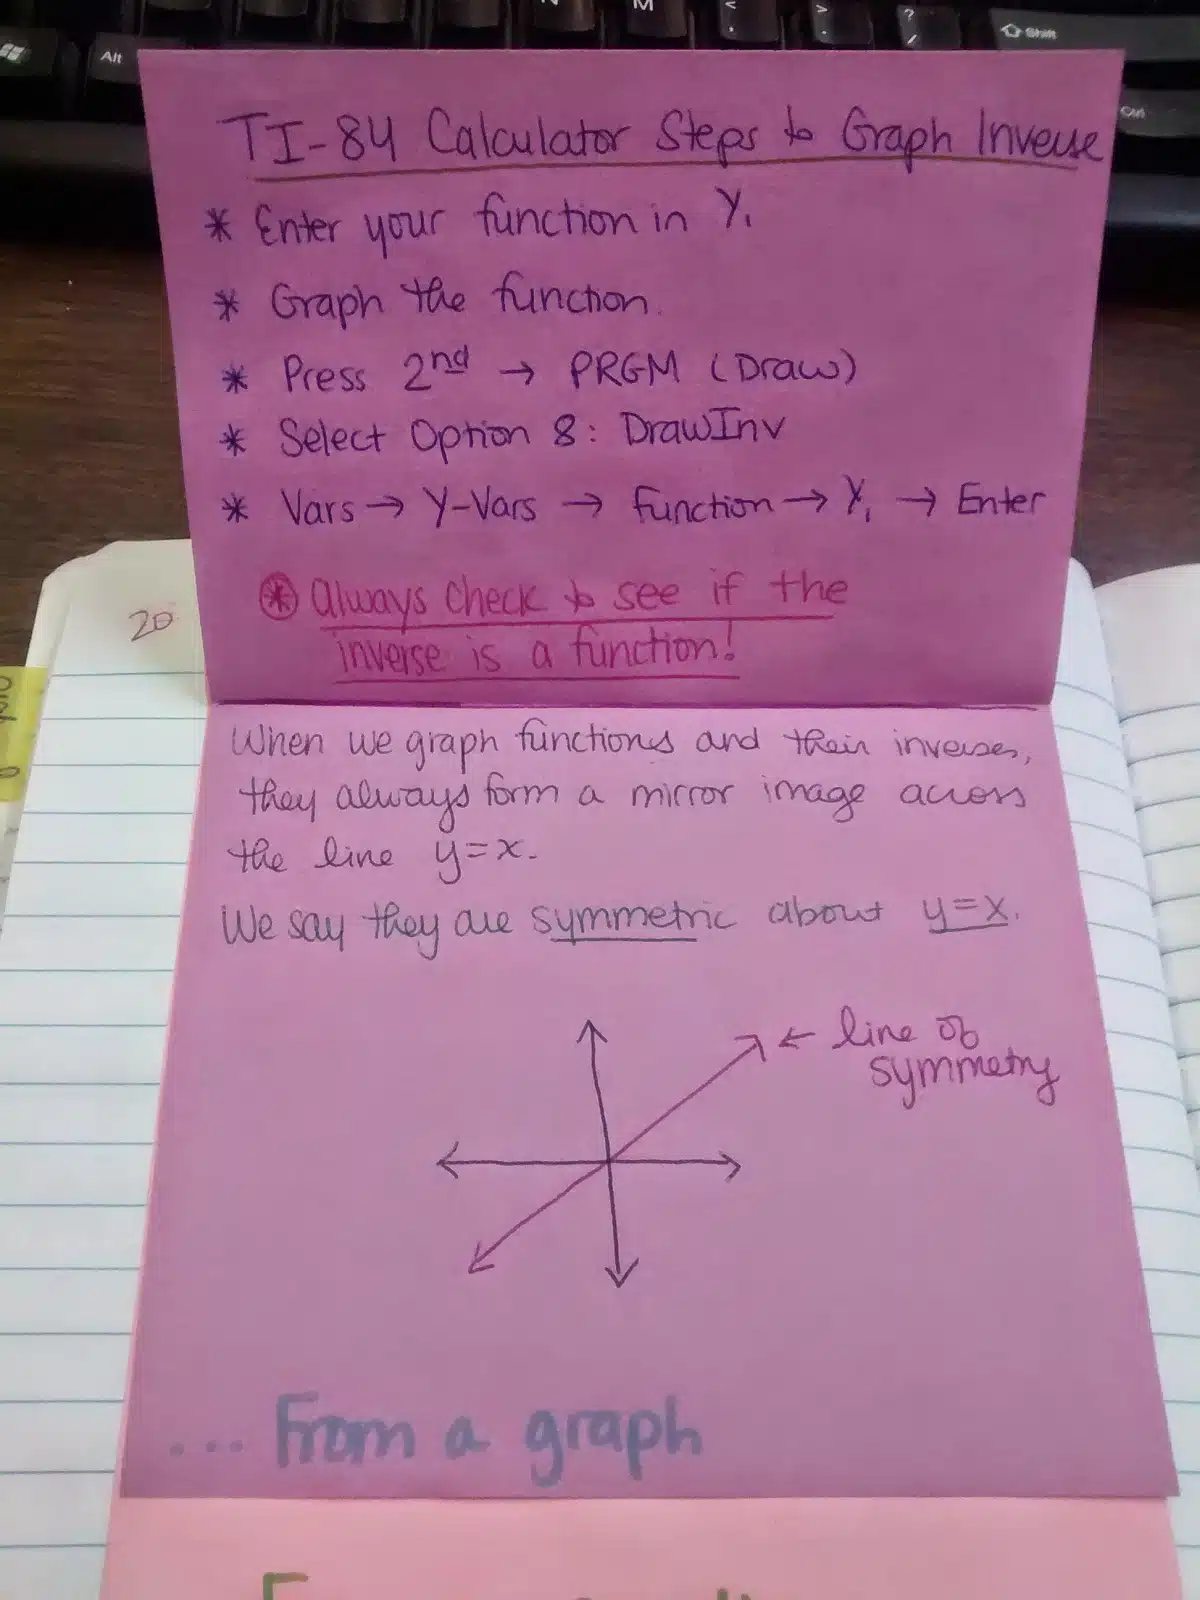 N M < , > . ? / Shift
Alt
Ctrl
TI-84 Calculator Steps to Graph Inverse
* Enter your function in Y₁
* Graph the function.
* Press 2nd → PRGM (Draw)
* Select Option 8: DrawInv
* Vars → Y-Vars → Function → Y₁ → Enter
* Always check to see if the
inverse is a function!
20
When we graph functions and their inverses,
they always form a mirror image across
the line y=x.
We say they are symmetric about y=x.
← line of
symmetry
... From a graph